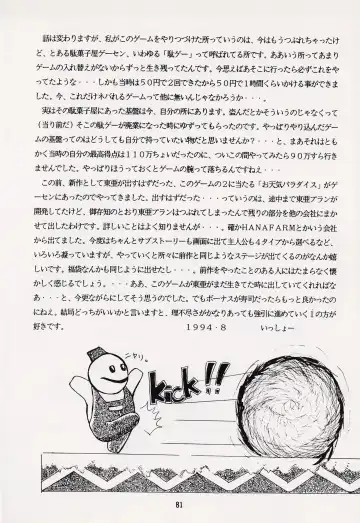 話は変わりますが、私がこのゲームをやりつづけた所っていうのは、今はもうつぶれちゃったけ
ど、とある駄菓子屋ゲーセン、いわゆる「駄ゲー」って呼ばれてる所です。ああいう所ってあまり
ゲームの入替えがないからずっと生き残ってたんです。今思えばあそこに行ったら必ずこれをやっ
てたような・・・しかも当時は５０円で２回できたから５０円で１時間くらいかける事ができまし
た。今、これだけネバれるゲームって他に無いんじゃなかろうか・・・。
実はその駄菓子屋にあった基盤が今、自分の所にあります。盗んだとかそういうのじゃなくって
（当り前だ）その駄ゲーが廃業になった時にゆずってもらったのです。やっぱりやり込んだゲーム
の基盤ってのはどうしても自分で持っていたい物だと思いませんか？・・・と、まあそれはとも
かく当時の自分の最高得点は１１０万ちょいだったのに、ついこの間やってみたら９０万すら行き
ませんでした。やっぱりほうっておくとゲームの腕って落ちるんですねえ・・・
この前、新作として東亜が出すはずだった、このゲームの２に当たる「お天気パラダイス」がゲ
ーセンにあったのでやってきました。出すはずだった・・・っていうのは、途中まで東亜プランが
開発してたけど、御存知のとおり東亜プランはつぶれてしまったんで残りの部分を他の会社にまか
せて出したわけです。詳しいことはよく知りませんが・・・。確かＨＡＮＡＦＡＲＭとかいう会社
から出てました。今度はちゃんとサブストーリーも画面に出て主人公も４タイプから選べるなど、
いろいろ凝っていますが、やっていくと所々に前作と同じようなステージが出てくるのがなんか嬉
しいです。福袋なんかも同じように出せたし・・・。前作をやったことのある人にはたまらなく懐
かしく感じるでしょう。・・・ああ、このゲームが東亜がまだ生きてた時に出していてくれればな
あ・・・と、今更ながらにしてそう思うのでした。でもボーナスが寿司だったらもっと良かったの
にねぇ。結局どっちがいいかと言いますと、理不尽さがかなりあっても強引に進めていくⅠの方が
好きです。　１９９４・８　いっしょー
ニヤリ
Kick!!
81